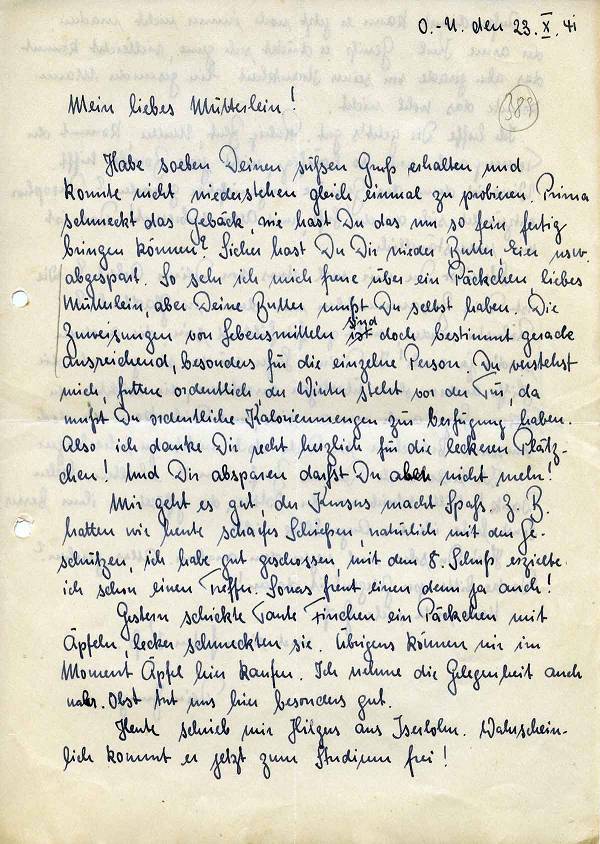 O.-U. den 23. X. 41
388
Mein liebes Mütterlein!
Habe soeben Deinen süßen Gruß erhalten und
konnte nicht wiederstehen gleich einmal zu probieren. Prima
schmeckt das Gebäck, wie hast Du das nur so fein fertig
bringen können? Sicher hast Du Dir wieder Butter, Eier usw.
abgespart. So sehr ich mich freue über ein Päckchen, liebes
Mütterlein, aber Deine Butter mußt Du selbst haben. Die
Zuweisungen von Lebensmitteln ist sind doch bestimmt gerade
ausreichend, besonders für die einzelne Person. Du verstehst
mich, futtere ordentlich der Winter steht vor der Tür, da
mußt Du ordentliche Kalorienmengen zur Verfügung haben.
Also ich danke Dir recht herzlich für die leckeren Plätz-
chen! Und Dir absparen darfst Du aber nicht mehr!
Mir geht es gut, der Kursus macht Spaß. Z. B.
hatten wir heute scharfes Schießen, natürlich mit den Ge-
schützen, ich habe gut geschossen, mit dem 8. Schuß erzielte
ich schon einen Treffer. Sowas freut einen dann ja auch!
Gestern schickte Tante Finchen ein Päckchen mit
Äpfeln, lecker schmeckten sie. Übrigens können wir im
Moment Äpfel hier kaufen. Ich nehme die Gelegenheit auch
wahr. Obst tut uns hier besonders gut.
Heute schrieb mir Hilgers aus Iserlohn. Wahrschein-
lich kommt er jetzt zum Studium frei!